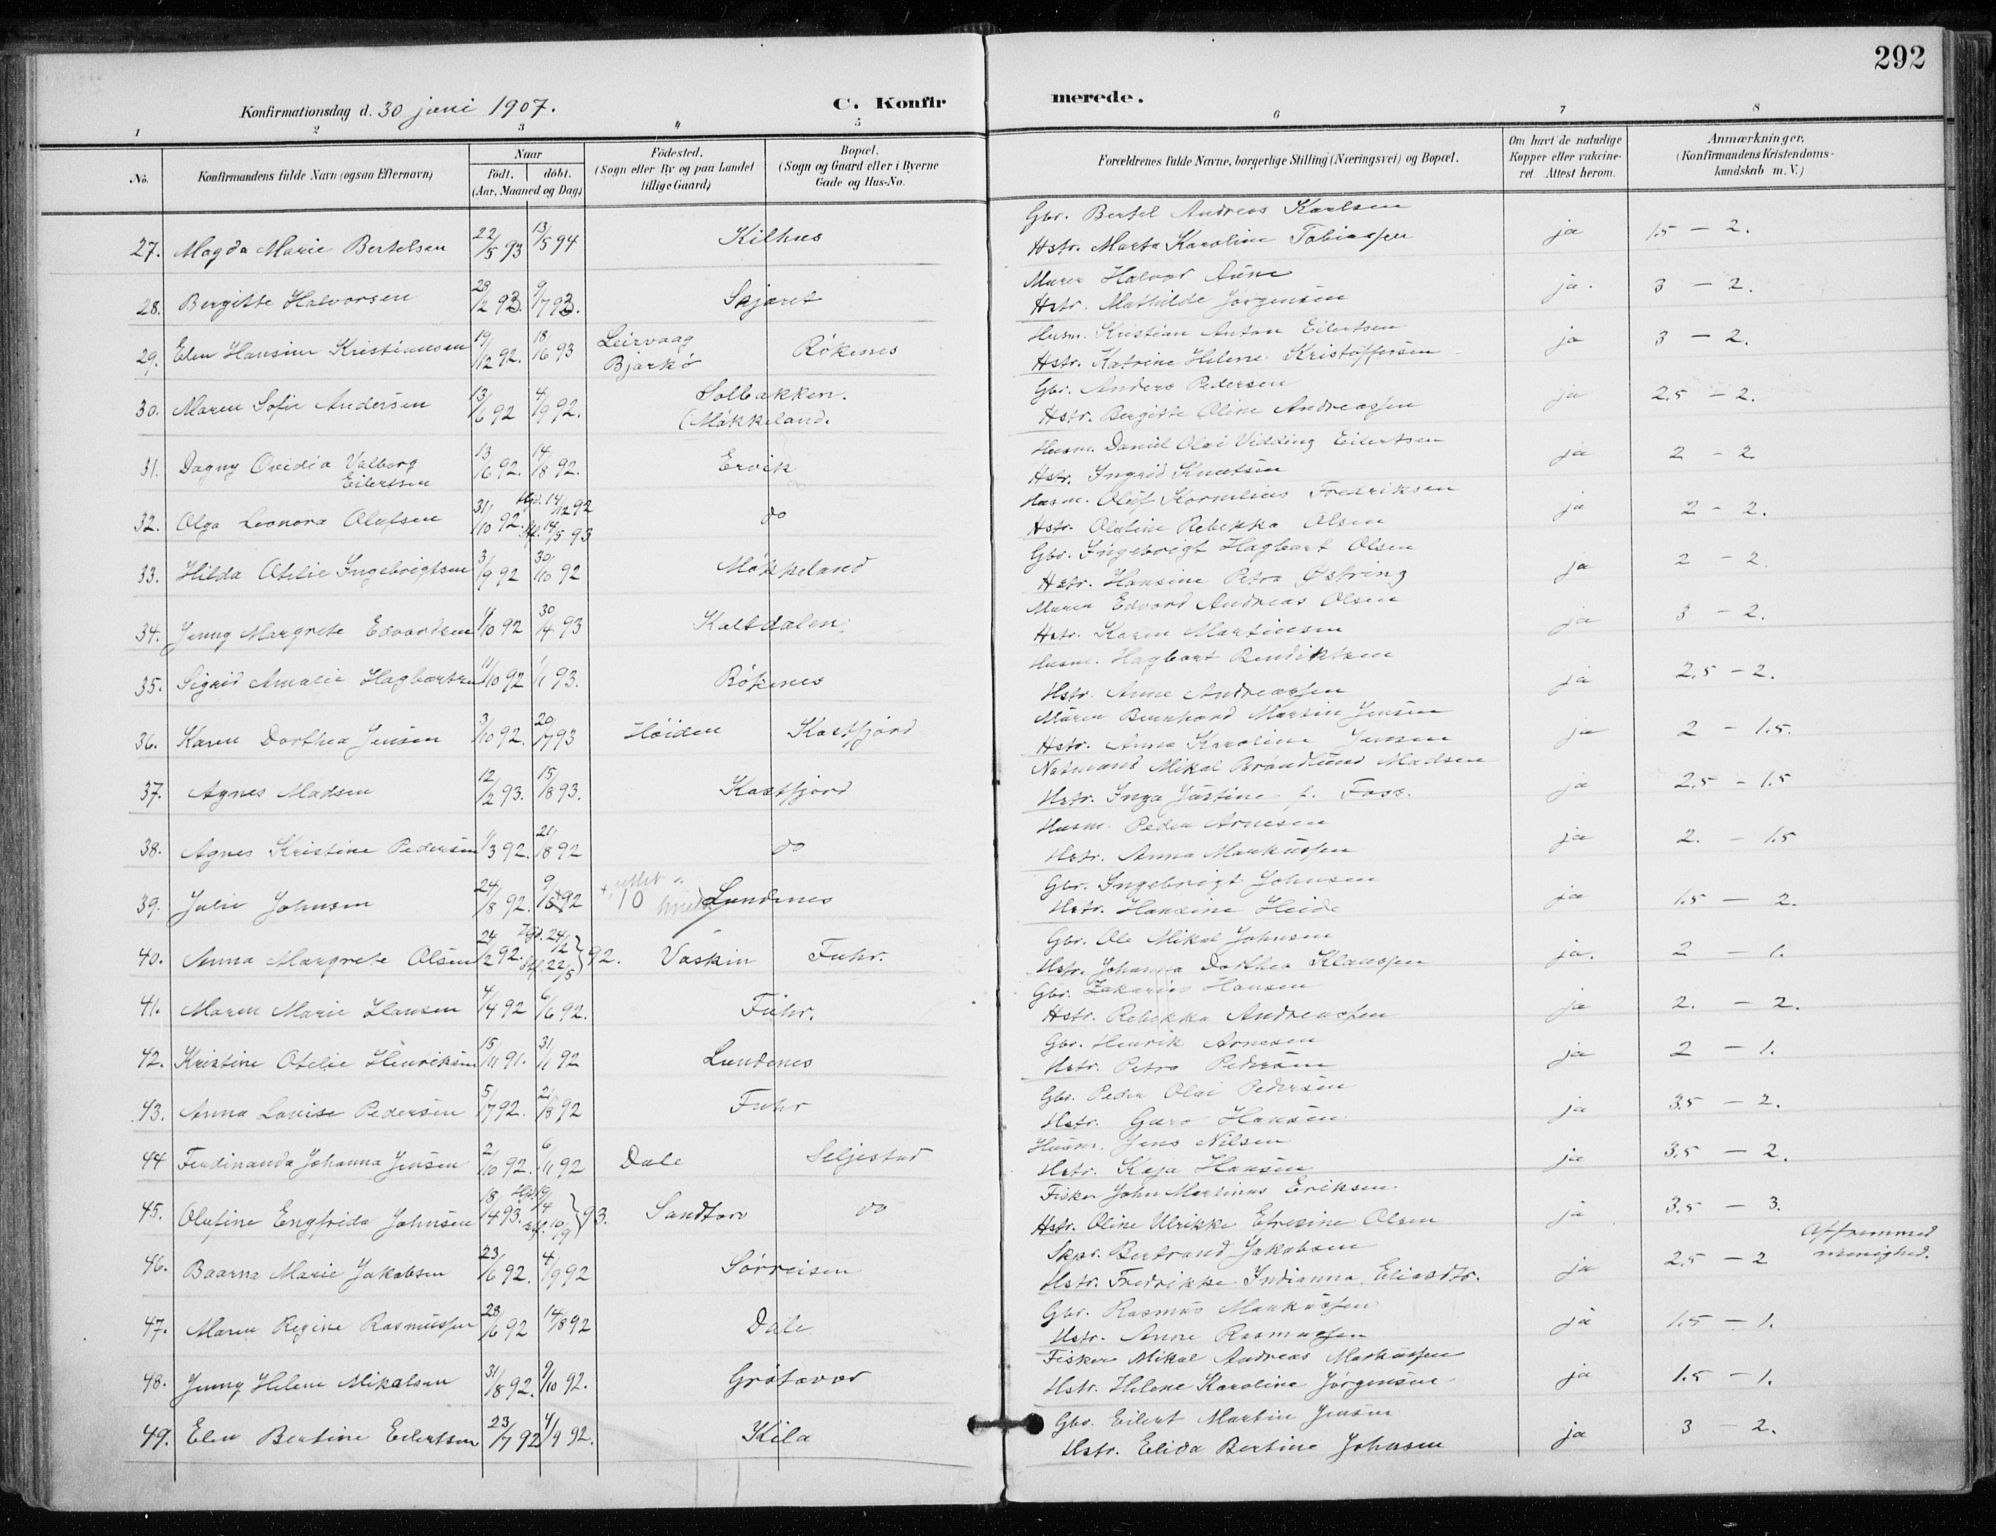 292
Konfirmationsdag d. 30 juni 1907. C. Konfirmerede.
1 2 3 4 5 6 7 8
No. Konfirmandens fulde Navn (ogsaa Efternavn) Naar Födt. döbt. (Aar, Maaned og Dag) Födested. (Sogn eller By og paa Landet tillige Gaard) Bopæl. (Sogn og Gaard eller i Byerne Gade og Hus-No. Forældrenes fulde Navne, borgerlige Stilling (Næringsvei) og Bopæl. Om havt de naturlige Kopper eller vakcineret. Attest herom. Anmærkninger. (Konfirmandens Kristendomskundskab m. V.)
27. Magda Marie Bertelsen 22/5 93 13/5 94 Kilhus Gbr. Bertel Andreas Karlsen Hstr. Marta Karoline Tobiassen ja 1.5 - 2.
28. Bergitte Halvorsen 28/2 93. 9/7 93. Skjæret Murer Halvor Aune Hstr. Mathilde Jørgensen ja. 3 - 2.
29. Elen Hansine Kristiansen 19/12 92. 18/6 93 Leirvaag Bjarkö Rökenes Husm. Kristian Anton Eilertsen Hstr. Katrine Helene Kristoffersen ja 3 - 2.
30. Maren Sofie Andersen 13/6 92 4/9 92. Solbakken. (Mökkeland. Gbr. Anders Pedersen Hstr. Bergitte Oline Andreassen ja 2.5 - 2.
31. Dagny Ovidia Valborg Eilertsen 13/6 92. 14/8 92. Ervik Husm. Daniel Olai Vidding Eilertsen Hstr. Ingrid Knutsen ja 2 - 2
32. Olga Leonora Olufsen 31/10 92. Hjd. 14/12 92 Stf. 14/5 93 do Husm. Oluf Kornelius Fredriksen Hstr. Olufine Rebekka Olsen ja 2 - 2.
33. Hilda Otelie Ingebrigtsen 3/9 92 30/10 92 Mökkeland Gbr. Ingebrigt Hagbart Olsen Hstr. Hansine Petra Østring ja 2 - 2.
34. Jenny Margrete Edvardsen /10 92 30/4 93 Kaltdalen. Murer Edvard Andreas Olsen Hstr. Karen Martinsen ja 3 - 2.
35. Sigrid Amalie Hagbartsen 11/10 92 1/1 93. Rökenes Husm. Hagbart Bendiktsen Hstr. Anne Andreassen ja 2.5 - 2.
36. Karen Dorthea Jensen 3/10 92. 20/7 93 Höiden Kastfjord Murer Bernhard Martin Jensen Hstr. Anna Karoline Jensen ja 2 - 1.5.
37. Agnes Madsen 12/2 93. 15/8 93. Kastfjord Notmand Mikal Brandlund Madsen Hstr. Inga Justine f. Foss. ja 2.5 - 1.5
38. Agnes Kristine Pedersen 1/3 92. 21/8 92 do Husm. Peder Arnesen Hstr. Anna Markussen ja 2. - 1.5
39. Julie Johnsen 24/8 92. 9/10 92 10 Lundenes Gbr. Ingebrigt Johnsen Hstr. Hansine Heide ja 1.5 - 2.
40. Anna Margrete Olsen 24/2 92. Hjd. 24/2 Stf. 22/5 } 92. Vaskin Fuhr. Gbr. Ole Mikal Johnsen Hstr. Johanna Dorthea Klaussen ja. 2 - 1.
41. Maren Marie Hansen 4/4 92 6/6 92. Fuhr. Gbr. Zakarias Hansen Hstr. Rebekka Andreassen ja 2. - 2.
42. Kristine Otelie Henriksen 15/11 91. 31/1 92 Lundenes Gbr. Henrik Arnesen Hstr. Petra Pedersen ja 2 - 1.
43. Anna Lovise Pedersen 5/7 92. 21/8 92 Fuhr Gbr. Peder Olai Pedersen Hstr. Guro Hansen ja 3.5 - 2.
44 Ferdinanda Johanna Jensen 2/10 92. 6/11 92 Dale Seljestad Husm. Jens Nilsen Hstr. Kaja Hansen ja 3.5 - 2.
45. Olufine Engfrida Johnsen 18/4 93. Hjd. 19/4 Stf. 10/9 } 93. Sandtorv do Fisker John Martinus Eriksen Hstr. Oline Ulrikke Efresine Olsen ja 3.5 - 3.
46. Baarna Marie Jakobsen 23/6 92. 4/9 92 Sørreisen Skpr. Bertrand Jakobsen Hstr. Fredrikke Indianna Eliasdtr. ja 2.5 - 2 Af fremmed menighed.
47. Maren Regine Rasmussen 28/6 92 14/8 92 Dale Gbr. Rasmus Markussen Hstr. Anne Rasmussen ja 1.5 - 1.
48. Jenny Helene Mikalsen 31/8 92. 9/10 92. Grötavær Fisker Mikal Andreas Markussen Hstr. Helene Karoline Jörgensen ja 1.5 - 1.
49. Elen Bertine Eilertsen 23/7 92 4/9 92. Kila Gbr. Eilert Martin Jensen Hstr. Elida Bertine Johnsen ja 3 - 2.